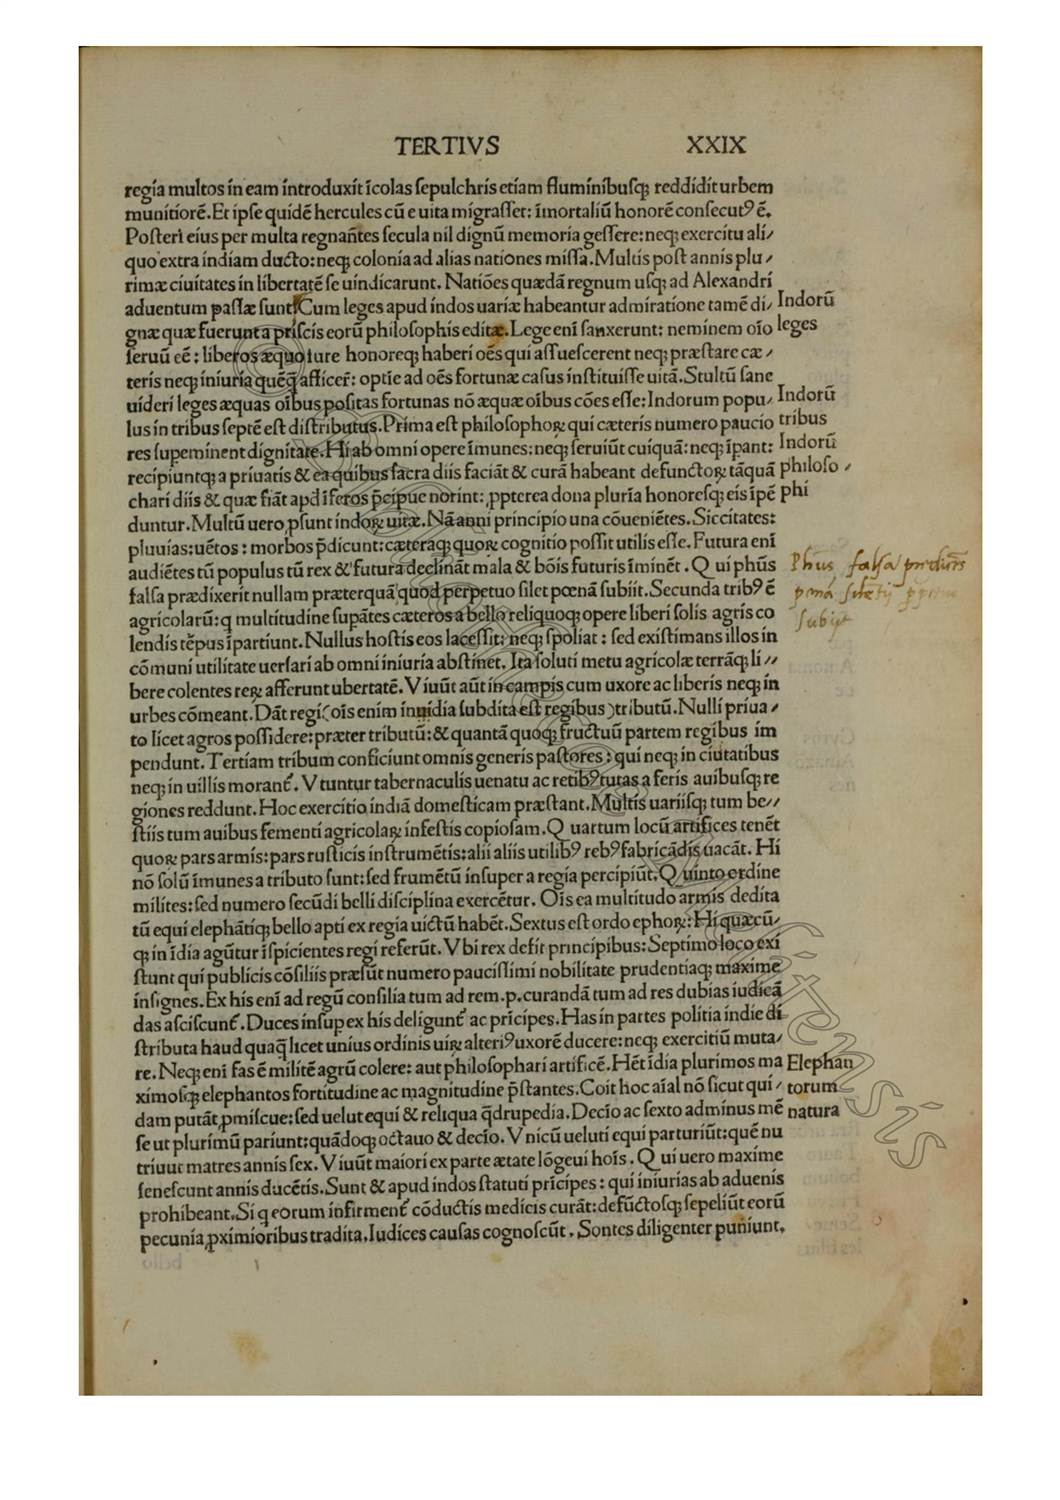 TERTIVS XXIX
regia multos in eam introduxit ĩcolas ſepulchris etiam fluminibuſq; reddidit urbem
munitiorẽ. Et ipſe quidẽ hercules cũ e uita migraſſet: ĩmortaliũ honorẽ conſecutꝰ ẽ.
Poſteri eius per multa regnañtes ſecula nil dignũ memoria geſſere: neq; exercitu ali/
quo extra indiam ducto: neq; colonia ad alias nationes miſſa. Multis poſt annis plu/
rimæ ciuitates in libertatẽ ſe uindicarunt. Natiões quædã regnum uſq; ad Alexandri
aduentum paſſæ ſunt. Cum leges apud indos uariæ habeantur admiratione tamẽ di/
gnæ quæ fuerunt a priſcis eorũ philoſophis editæ. Lege eni ſanxerunt: neminem oĩo
ſeruũ eẽ: liberos æquo iure honoreq; haberi oẽs qui aſſueſcerent neq; præſtare cæ/
teris neq; iniuria quẽq̃ afficer̃: optie ad oẽs fortunæ caſus inſtituiſſe uitã. Stultũ ſane
uideri leges æquas oĩbus poſitas fortunas nõ æquæ oĩbus cões eſſe: Indorum popu/
lus in tribus ſeptẽ eſt diſtributus. Prima eſt philoſophoꝝ qui cæteris numero paucio
res ſupeminent dignitate. Hi ab omni opere ĩmunes: neq; ſeruiũt cuiquã: neq; ĩpant:
recipiuntq; a priuatis & ea quibus ſacra diis faciãt & curã habeant defunctoꝝ tãquã
chari diis & quæ fiãt apd ĩferos p̃cipue norint: ꝓpterea dona pluria honoreſq; eis ĩpẽ
duntur. Multũ uero ꝓſunt indoꝝ uitæ. Nã anni principio una cõueniẽtes. Siccitates:
pluuias: uẽtos: morbos p̃dicunt: cæteraq; quoꝝ cognitio poſſit utilis eſſe. Futura eni
audiẽtes tũ populus tũ rex & futura declinãt mala & bõis futuris ĩminẽt. Qui phũs
falſa prædixerit nullam præterquã quod perpetuo ſilet pœnã ſubiit. Secunda tribꝰ ẽ
agricolarũ: q multitudine ſupãtes cæteros a bello reliquoq; opere liberi ſolis agris co
lendis tẽpus ĩpartiunt. Nullus hoſtis eos laceſſit: neq; ſpoliat: ſed exiſtimans illos in
cõmuni utilitate uerſari ab omni iniuria abſtinet. Ita ſoluti metu agricolæ terrãq; li//
bere colentes reꝝ afferunt ubertatẽ. Viuũt aũt in campis cum uxore ac liberis neq; in
urbes cõmeant. Dãt regi (oĩs enim inuidia ſubdita eſt regibus) tributũ. Nulli priua/
to licet agros poſſidere: præter tributũ: & quantã quoq; fructuũ partem regibus im
pendunt. Tertiam tribum conficiunt omnis generis paſtores: qui neq; in ciuitatibus
neq; in uillis morant᷑. Vtuntur tabernaculis uenatu ac retibꝰ tutas a feris auibuſq; re
giones reddunt. Hoc exercitio indiã domeſticam præſtant. Multis uariiſq; tum be//
ſtiis tum auibus ſementi agricolaꝝ infeſtis copioſam. Quartum locũ artifices tenẽt
quoꝝ pars armis: pars ruſticis inſtrumẽtis: alii aliis utilibꝰ rebꝰ fabricãdis uacãt. Hi
nõ ſolũ ĩmunes a tributo ſunt: ſed frumẽtũ inſuper a regia percipiũt. Quinto ordine
milites: ſed numero ſecũdi belli diſciplina exercẽtur. Oĩs ea multitudo armis dedita
tũ equi elephãtiq; bello apti ex regia uictũ habẽt. Sextus eſt ordo ephoꝝ: Hi quæcũ/
q; in ĩdia agũtur ĩſpicientes regi referũt. Vbi rex deſit principibus: Septimo loco exi
ſtunt qui publicis cõſiliis præſũt numero pauciſſimi nobilitate prudentiaq; maxime
inſignes. Ex his eni ad regũ conſilia tum ad rem .p. curandã tum ad res dubias iudicã
das aſciſcunt᷑. Duces inſup ex his deligunt᷑ ac prĩcipes. Has in partes politia indie di
ſtributa haud quaq̃ licet unius ordinis uiꝝ alteriꝰ uxorẽ ducere: neq; exercitiũ muta/
re. Neq; eni fas ẽ militẽ agrũ colere: aut philoſophari artificẽ. Hẽt ĩdia plurimos ma
ximoſq; elephantos fortitudine ac magnitudine p̃ſtantes. Coit hoc aĩal nõ ſicut qui/
dam putãt ꝓmiſcue: ſed uelut equi & reliqua q̃drupedia. Decĩo ac ſexto adminus mẽ
ſe ut plurimũ pariunt: quãdoq; octauo & decĩo. Vnicũ ueluti equi parturiũt: quẽ nu
triuut matres annis ſex. Viuũt maiori ex parte ætate lõgeui hoĩs. Qui uero maxime
ſeneſcunt annis ducẽtis. Sunt & apud indos ſtatuti prĩcipes: qui iniurias ab aduenis
prohibeant. Si q eorum infirment᷑ cõductis medicis curãt: defũctoſq; ſepeliũt eorũ
pecunia ꝓximioribus tradita. Iudices cauſas cognoſcũt. Sontes diligenter puniunt.
Indorũ
leges
Indorũ
tribus
Indorũ
philoſo/
phi
Phus falſa
ſubijt
Elephan
torum
natura